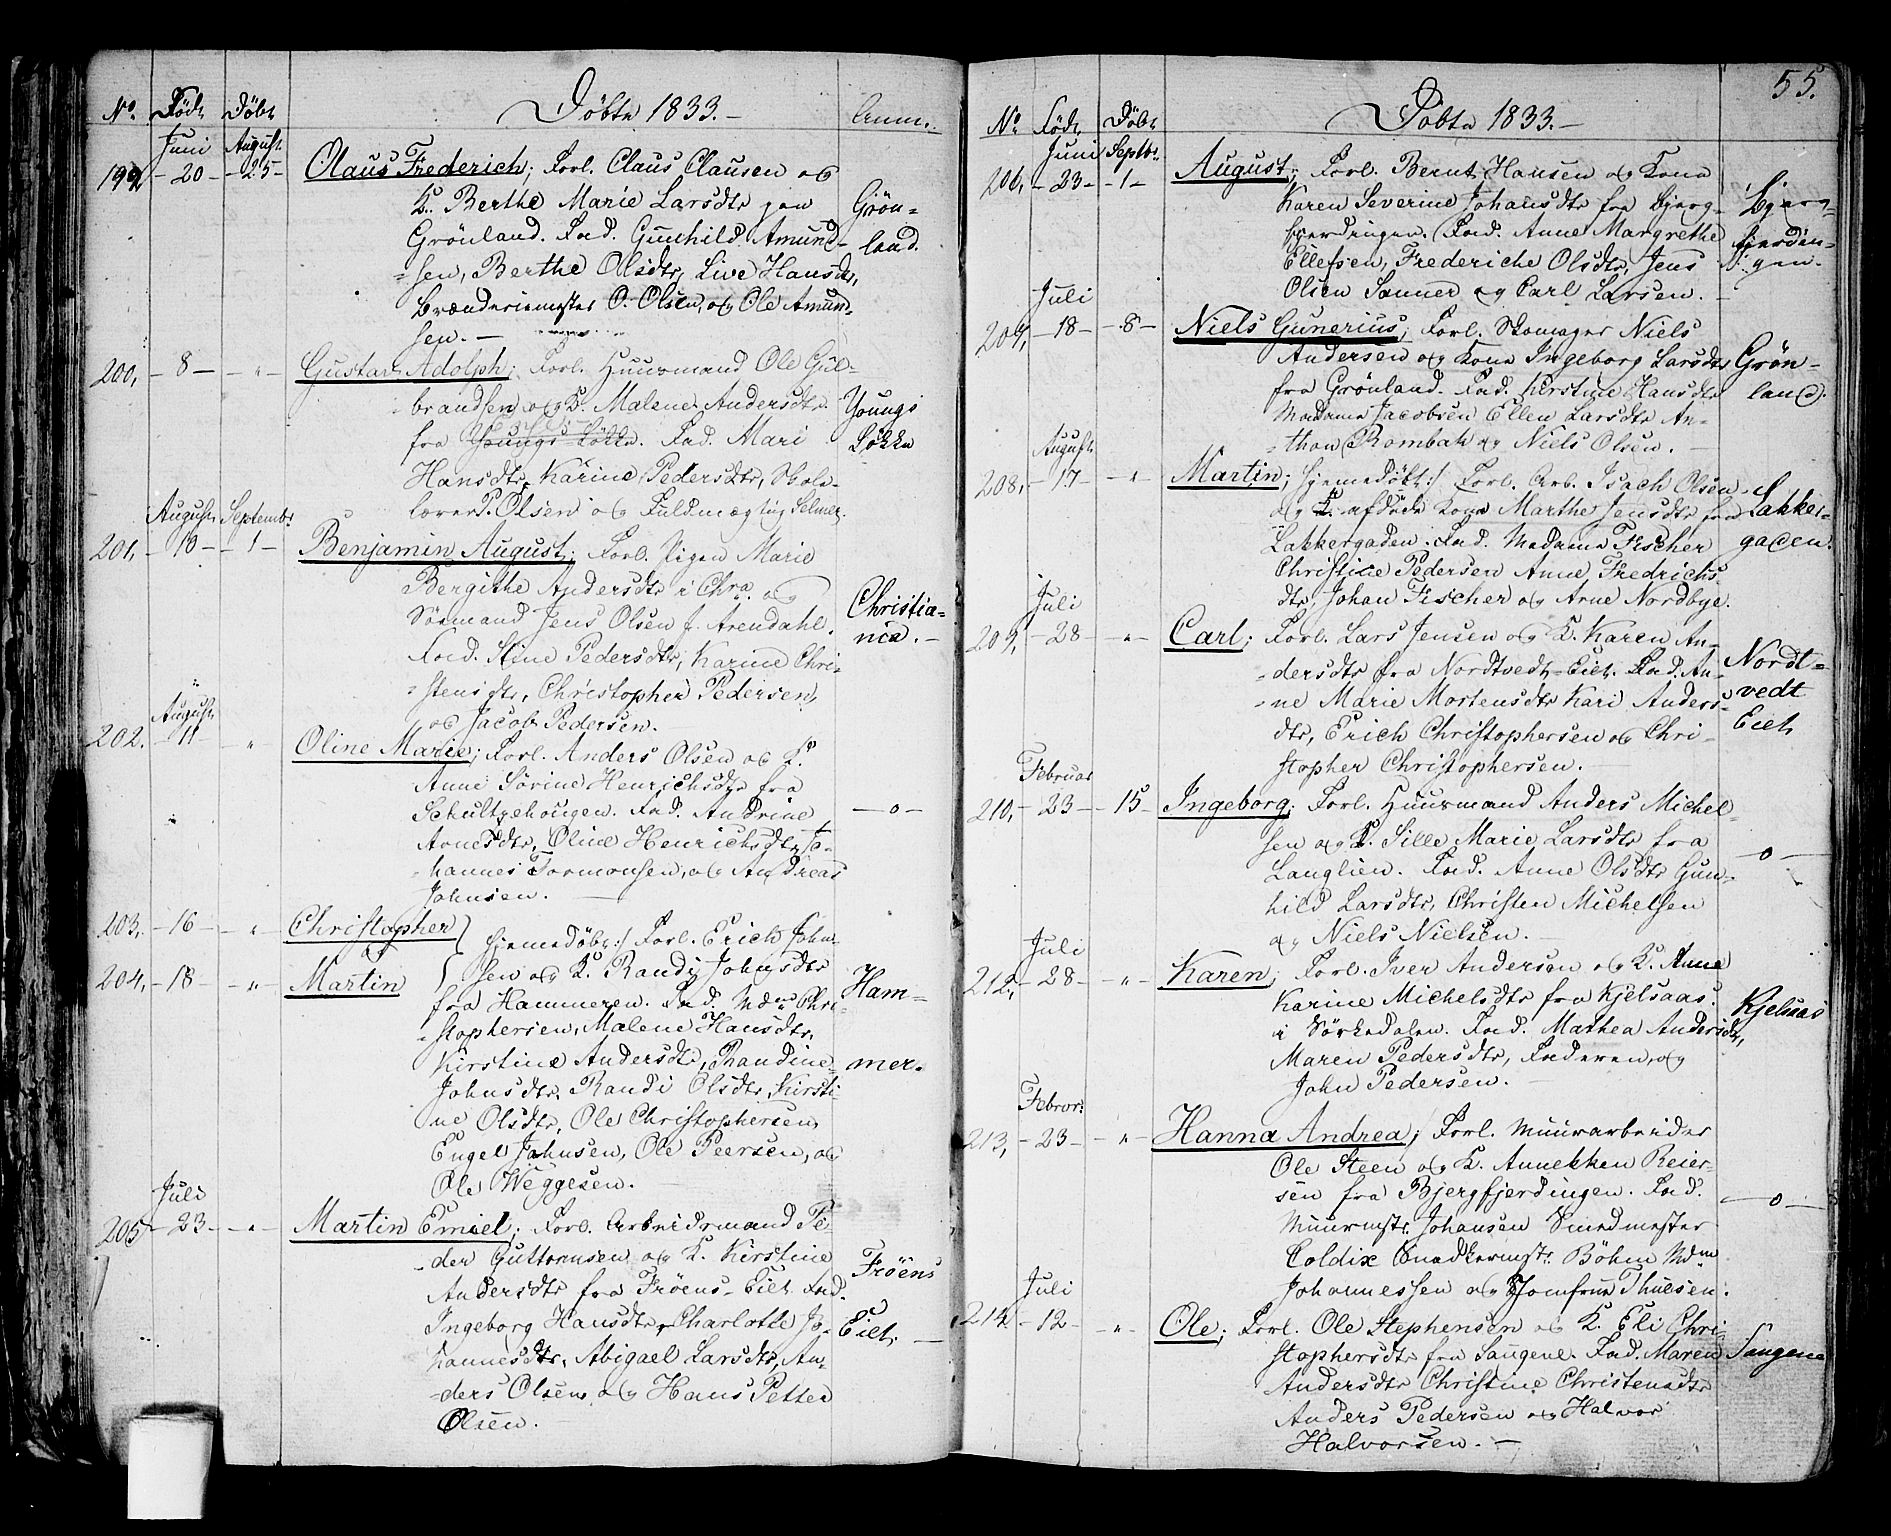 No. Født Døbt Døbte 1833.- Anm.
Juni August
199, - 20 - - 25 - Olaus Frederich; Forl. Claus Clausen og
K. Berthe Marie Larsdtr paa Grøn-
Grönland. Fad. Gunhild Amund- land.
-sen, Berthe Olsdtr, Live Hansdtr,
Brænderiemester O. Olsen, og Ole Amun-
sen. -
200, - 8 - - " - Gustav Adolph; Forl. Huusmand Ole Gul-
brandsen og K. Malene Andersdtr Youngs
fra Youngs Løkke. Fad. Mari Løkke
Hansdtr, Karine Pedersdtr, Skole-
lærer P. Olsen og Fuldmægtig Selmer.
August Septembr
201, - 10 - - 1 - Benjamin August; Forl. Pigen Marie
Bergithe Andersdtr i Chra. og Christia-
Sømand Jens Olsen f. Arendahl. nia. -
Fad. Stine Pedersdtr, Karine Chri-
-stensdtr, Christopher Pedersen,
og Jacob Pedersen.
August
202. - 11 " Oline Marie; Forl. Anders Olsen og K.
Anne Sörine Henrichsdtr fra
Schultzehougen. Fad. Andrine - o -
Arnesdtr, Oline Henrichsdtr, Jo-
-hannes Tormonsen, og Andreas
Johnsen.
203, - 16 - - " - Christopher
og hjemmedøbt:/ Forl. Erich John-
204, - 18 - - " - Martin sen og K. Randi Johnsdtr Ham-
fra Hammeren. Fad. Mdm Chri-
-stophersen, Malene Hansdtr,
Kirstine Andersdtr, Randine mer.
Johnsdtr, Randi Olsdtr, Kirsti-
ne Olsdtr, Ole Christophersen,
Engel Johnsen, Ole Peersen, og
Ole Weggesen. -
Juli
205 - 23 - - " - Martin Emiel; Forl. Arbeidsmand Pe-
-der Guttormsen og K. Kirstine Fröens
Andersdtr fra Fröens-Eiet. Fad.
Ingeborg Hansdtr, Charlotte Jo- Eiet. -
hannesdtr, Abigael Larsdtr, An-
-ders Olsen, og Hans Petter
Olsen. -
55.
No. Født Døbt Døbte 1833.-
Juni Septbr.
206, - 23 - - 1 - August; Forl. Bernt Hansen og Kone
Karen Severine Johansdtr fra Bjerg- Bjerg-
fjerdingen. Fad. Anne Margrethe fjerdin-
Ellefsen, Frederiche Olsdtr, Jens gen.
Olsen Sanner og Carl Larsen. -
Juli
207, - 18 - - 8 - Niels Gunerius; Forl. Skomager Niels
Andersen og Kone Ingeborg Larsdtr Grøn-
fra Grönland. Fad. Kirstine Hansdtr land.
Madame Jacobsen Ellen Larsdtr An-
-thon Rombak og Niels Olsen. -
August
208, - 17 - - " - Martin; hjemmedøbt:/ Forl. Arb. Isach Olsen
og afdøde Kone Marthe Jensdtr fra Lakker-
Lakkergaden. Fad. Madame Fischer gaden.
Christine Pedersen Anne Fredrichs-
dtr, Johan Fischer og Arne Nordbye.
Juli
209, - 28 - - " - Carl; Forl. Lars Jensen og K. Karen An-
-dersdtr fra Nordtvedt-Eiet. Fad. An- Nordt-
-ne Marie Mortensdtr Kari Anders- vedt
dtr, Erich Christophersen og Chri- Eiet
stopher Christophersen. -
Februar
210, - 23 - 15 - Ingeborg; Forl. Huusmand Anders Michel-
sen og K. Sille Marie Larsdtr fra
Langlien. Fad. Anne Olsdtr Gun- - o -
hild Larsdtr, Christen Michelsen
og Niels Nielsen. -
Juli
212, - 28 - - " - Karen; Forl. Iver Andersen og K. Anne
Karine Michelsdtr fra Kjelsaas Kjelsaas
i Sørkedalen. Fad. Mathea Andersdtr,
Maren Pedersdtr, Faderen, og
John Pedersen. -
Februar:
213, - 23 - - " - Hanna Andrea; Forl. Muurarbeider
Ole Steen og K. Annekken Reier-
sen fra Bjergfjerdingen. Fad. - o -
Muurmstr. Johansen Smedmester
Coldix Snedkermstr. Böhm Mdm
Johannessen og Jomfrue Thuesen.
Juli
214 - 12 - - " - Ole; Forl. Ole Stephensen og K. Eli Chri-
stophersdtr fra Saugene. Fad. Maren Saugene
Andersdtr Christine Christensdtr
Anders Pedersen og Halvor
Halvorsen. -